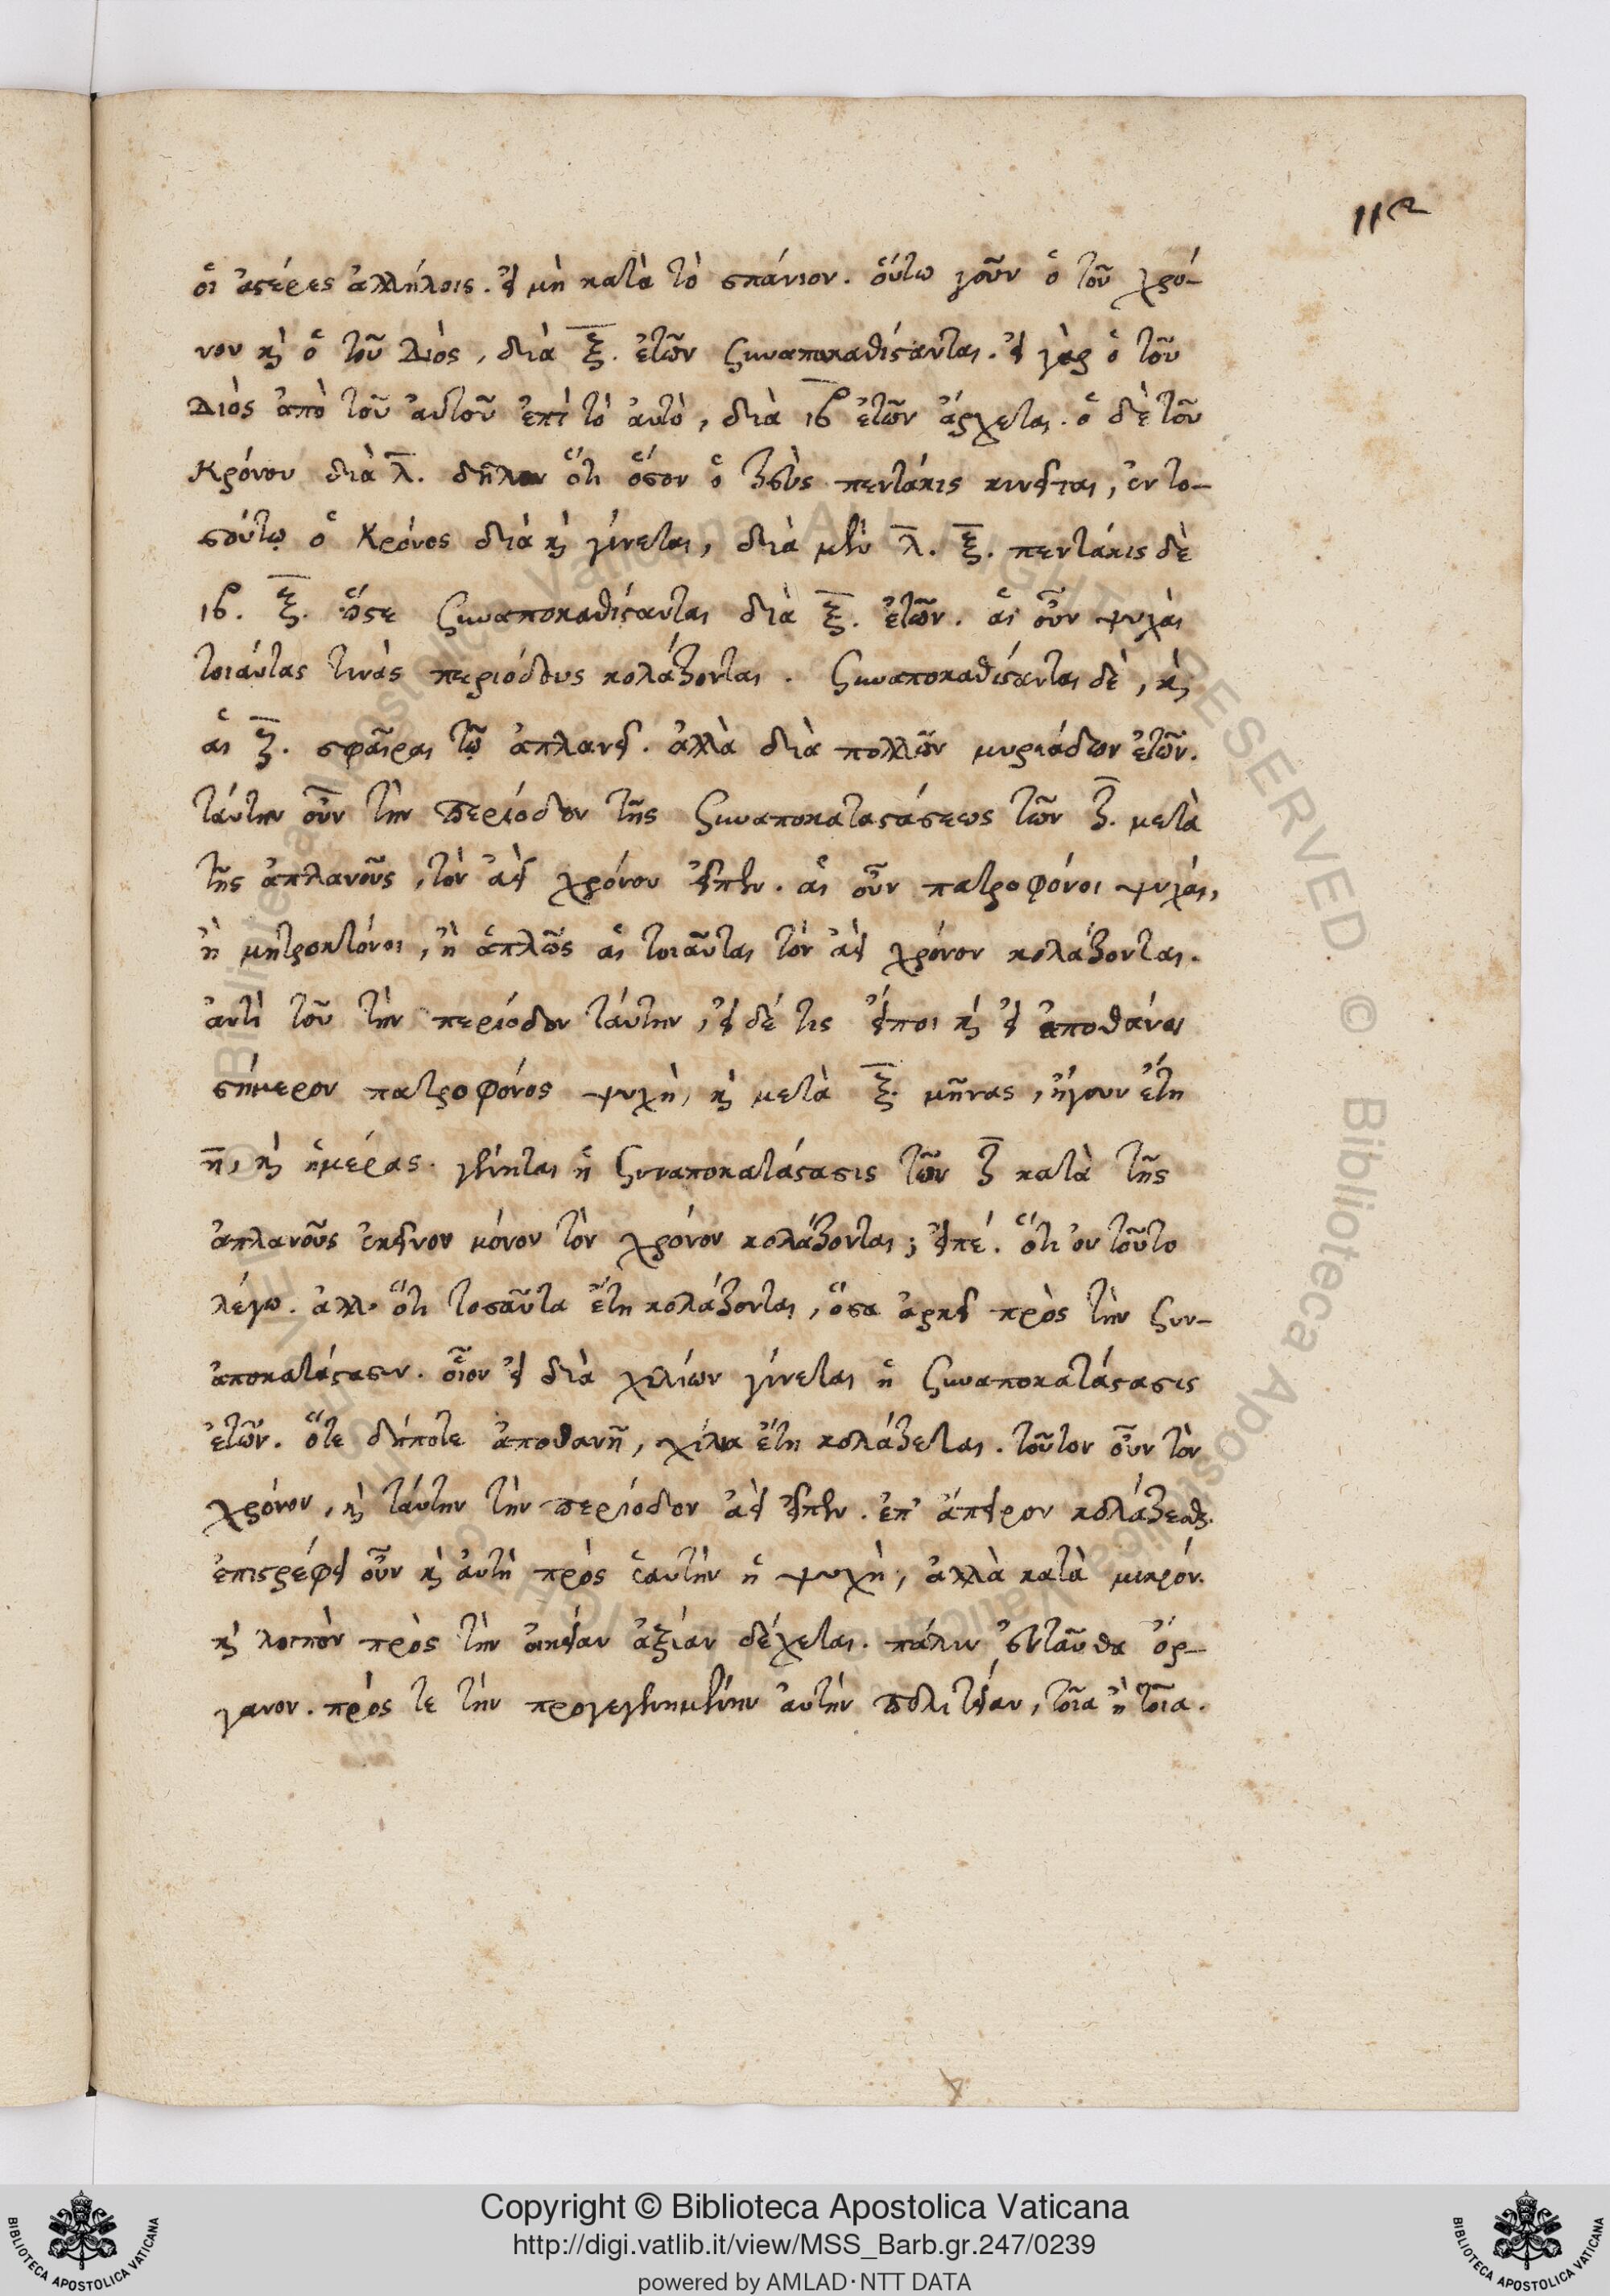 112
οἱ ἀστέρες ἀλλήλοις. εἰ μὴ κατὰ τὸ σπάνιον. οὕτω γοῦν ὁ τοῦ χρό-
νου καὶ ὁ τοῦ Διός, διὰ ξ. ἐτῶν ξυναποκαθίστανται. εἰ γὰρ ὁ τοῦ
Διὸς ἀπὸ τοῦ αὐτοῦ ἐπὶ τὸ αὐτὸ, διὰ ιβ ἐτῶν ἄρχεται. ὁ δὲ τοῦ
Κρόνου διὰ λ. δῆλον ὅτι ὅσον ὁ ζεὺς πεντάκις κινεῖται, ἐν το-
σούτῳ ὁ Κρόνος διὰ καὶ γίνεται, διὰ μὲν λ. ξ. πεντάκις δὲ
ιβ. ξ. ὥστε ξυναποκαθίστανται διὰ ξ. ἐτῶν. αἱ οὖν ψυχαὶ
τοιαύτας τινὰς περιόδους κολάζονται. ξυναποκαθίστανται δὲ, καὶ
αἱ ζ. σφαῖραι τῷ ἀπλανεῖ. ἀλλὰ διὰ πολλῶν μυριάδων ἐτῶν.
ταύτην οὖν τὴν περίοδον τῆς ξυναποκαταστάσεως τῶν ζ. μετὰ
τῆς ἀπλανοῦς, τὸν ἀεὶ χρόνον εἶπεν. αἱ οὖν πατροφόνοι ψυχαὶ,
ἢ μητροκτόνοι, ἢ ἁπλῶς αἱ τοιαῦται τὸν ἀεὶ χρόνον κολάζονται.
ἀντὶ τοῦ τὴν περίοδον ταύτην, εἰ δέ τις εἴποι καὶ εἰ ἀποθάνοι
σήμερον πατροφόνος ψυχὴ, καὶ μετὰ ξ. μῆνας, ἤγουν ἔτη
η, καὶ ἡμέρας. γένηται ἡ ξυναποκατάστασις τῶν ζ κατὰ τῆς
ἀπλανοῦς ἐκεῖνον μόνον τὸν χρόνον κολάζονται; εἰπέ. ὅτι οὐ τοῦτο
λέγω. ἀλλ' ὅτι τοσαῦτα ἔτη κολάζονται, ὅσα ἀρκεῖ πρὸς τὴν ξυν-
αποκατάστασιν. οἷον εἰ διὰ χιλίων γίνεται ἡ ξυναποκατάστασις
ἐτῶν. ὅτε δήποτε ἀποθανῇ, χίλια ἔτη κολάζεται. τοῦτον οὖν τὸν
χρόνον, καὶ ταύτην τὴν περίοδον ἀεὶ εἶπεν. ἐπ' ἄπειρον κολάζεσθαι.
ἐπιστρέφει οὖν καὶ αὐτὴ πρὸς ἑαυτὴν ἡ ψυχὴ, ἀλλὰ κατὰ μικρόν.
καὶ λοιπὸν πρὸς τὴν οἰκείαν ἀξίαν δέχεται. πάλιν ἐνταῦθα ὄρ-
γανον. πρός τε τὴν προγεγενημένην αὐτὴν πολιτείαν, τοῖα ἢ τοῖα.
Copyright © Biblioteca Apostolica Vaticana
http://digi.vatlib.it/view/MSS_Barb.gr.247/0239
powered by AMLAD·NTT DATA